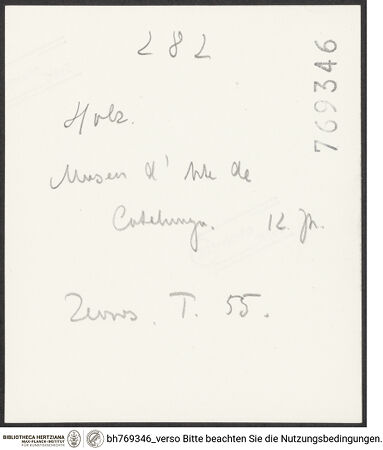 282
769346
Holz.
Museu d'Arte de
Catalunya. 12. Jh.
Zervos. T. 55.
BIBLIOTHECA HERTZIANA
MAX-PLANCK-INSTITUT
FÜR KUNSTGESCHICHTE
bh769346_verso Bitte beachten Sie die Nutzungsbedingungen.